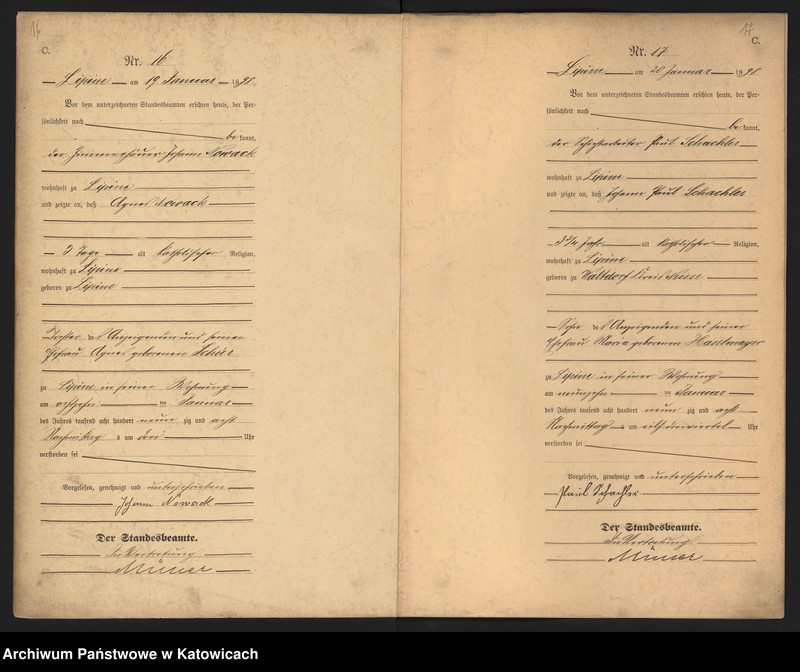 16
C.
Nr. 16
Lipine am 19 Januar 1898
Vor dem unterzeichneten Standesbeamten erschien heute, der Per-
sönlichkeit nach
be kannt,
der Zimmerhäuer Johann Nowack
wohnhaft zu Lipine
und zeigte an, daß Agnes Nowack
3 Tage alt katholischer Religion,
wohnhaft zu Lipine
geboren zu Lipine
Tochter des Anzeigenden und seiner
Ehefrau Agnes geborenen
zu Lipine in seiner Wohnung
am achtzehn ten Januar
des Jahres tausend acht hundert neun zig und acht
Nachmittag s um drei Uhr
verstorben sei
Vorgelesen, genehmigt und unterschrieben
Johann Nowack
Der Standesbeamte.
In Vertretung
17
C.
Nr. 17
Lipine am 20 Januar 1898
Vor dem unterzeichneten Standesbeamten erschien heute, der Per-
sönlichkeit nach
be kannt,
der Paul Schachler
wohnhaft zu Lipine
und zeigte an, daß Johann Paul Schachler
alt katholischer Religion,
wohnhaft zu Lipine
geboren zu Waltdorf Kreis Neisse
Sohn des Anzeigenden und seiner
Ehefrau Maria geborenen
zu Lipine in seiner Wohnung
am neunzehn ten Januar
des Jahres tausend acht hundert neun zig und acht
Nachmittag s um Uhr
verstorben sei
Vorgelesen, genehmigt und unterschrieben
Paul Schachler
Der Standesbeamte.
In Vertretung
Archiwum Państwowe w Katowicach